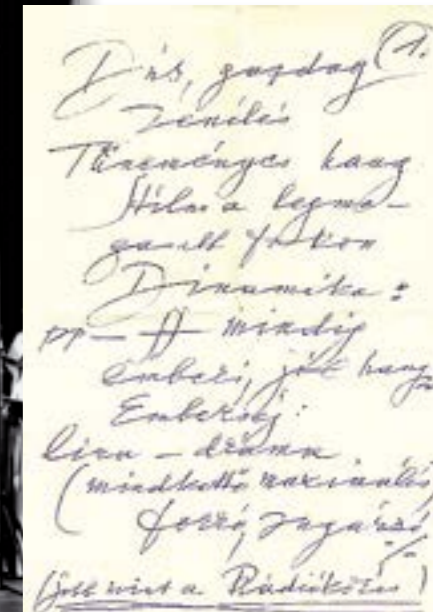 (1.
Dús, gazdag
zenélés
Tüneményes hang
Stílus a legma-
gasabb fokon
Dinamika:
pp – ff mindig
emberi, jó hang
Emberség:
líra – dráma
(mindkettő maximális)
forró, sugárzó
(jobb mint a Rádiókórus)